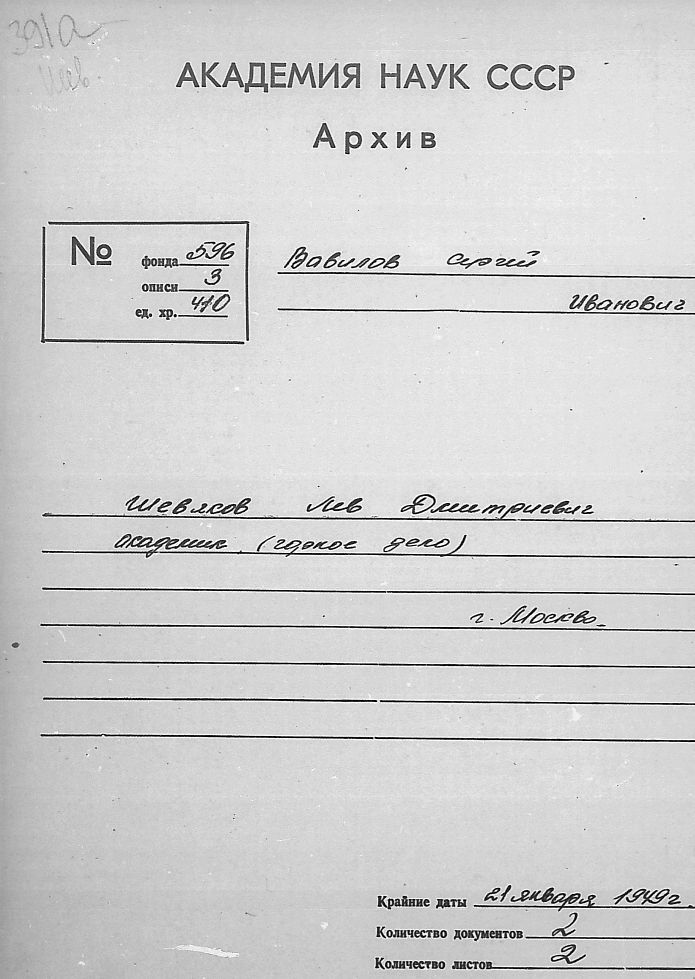 391а
АКАДЕМИЯ НАУК СССР
Архив
№
фонда 596
описи 3
ед. хр. 410
Вавилов Сергей
Иванович
Шевяков Лев Дмитриевич
академик (горное дело)
г. Москва
Крайние даты 21 января 1949 г.
Количество документов 2
Количество листов 2